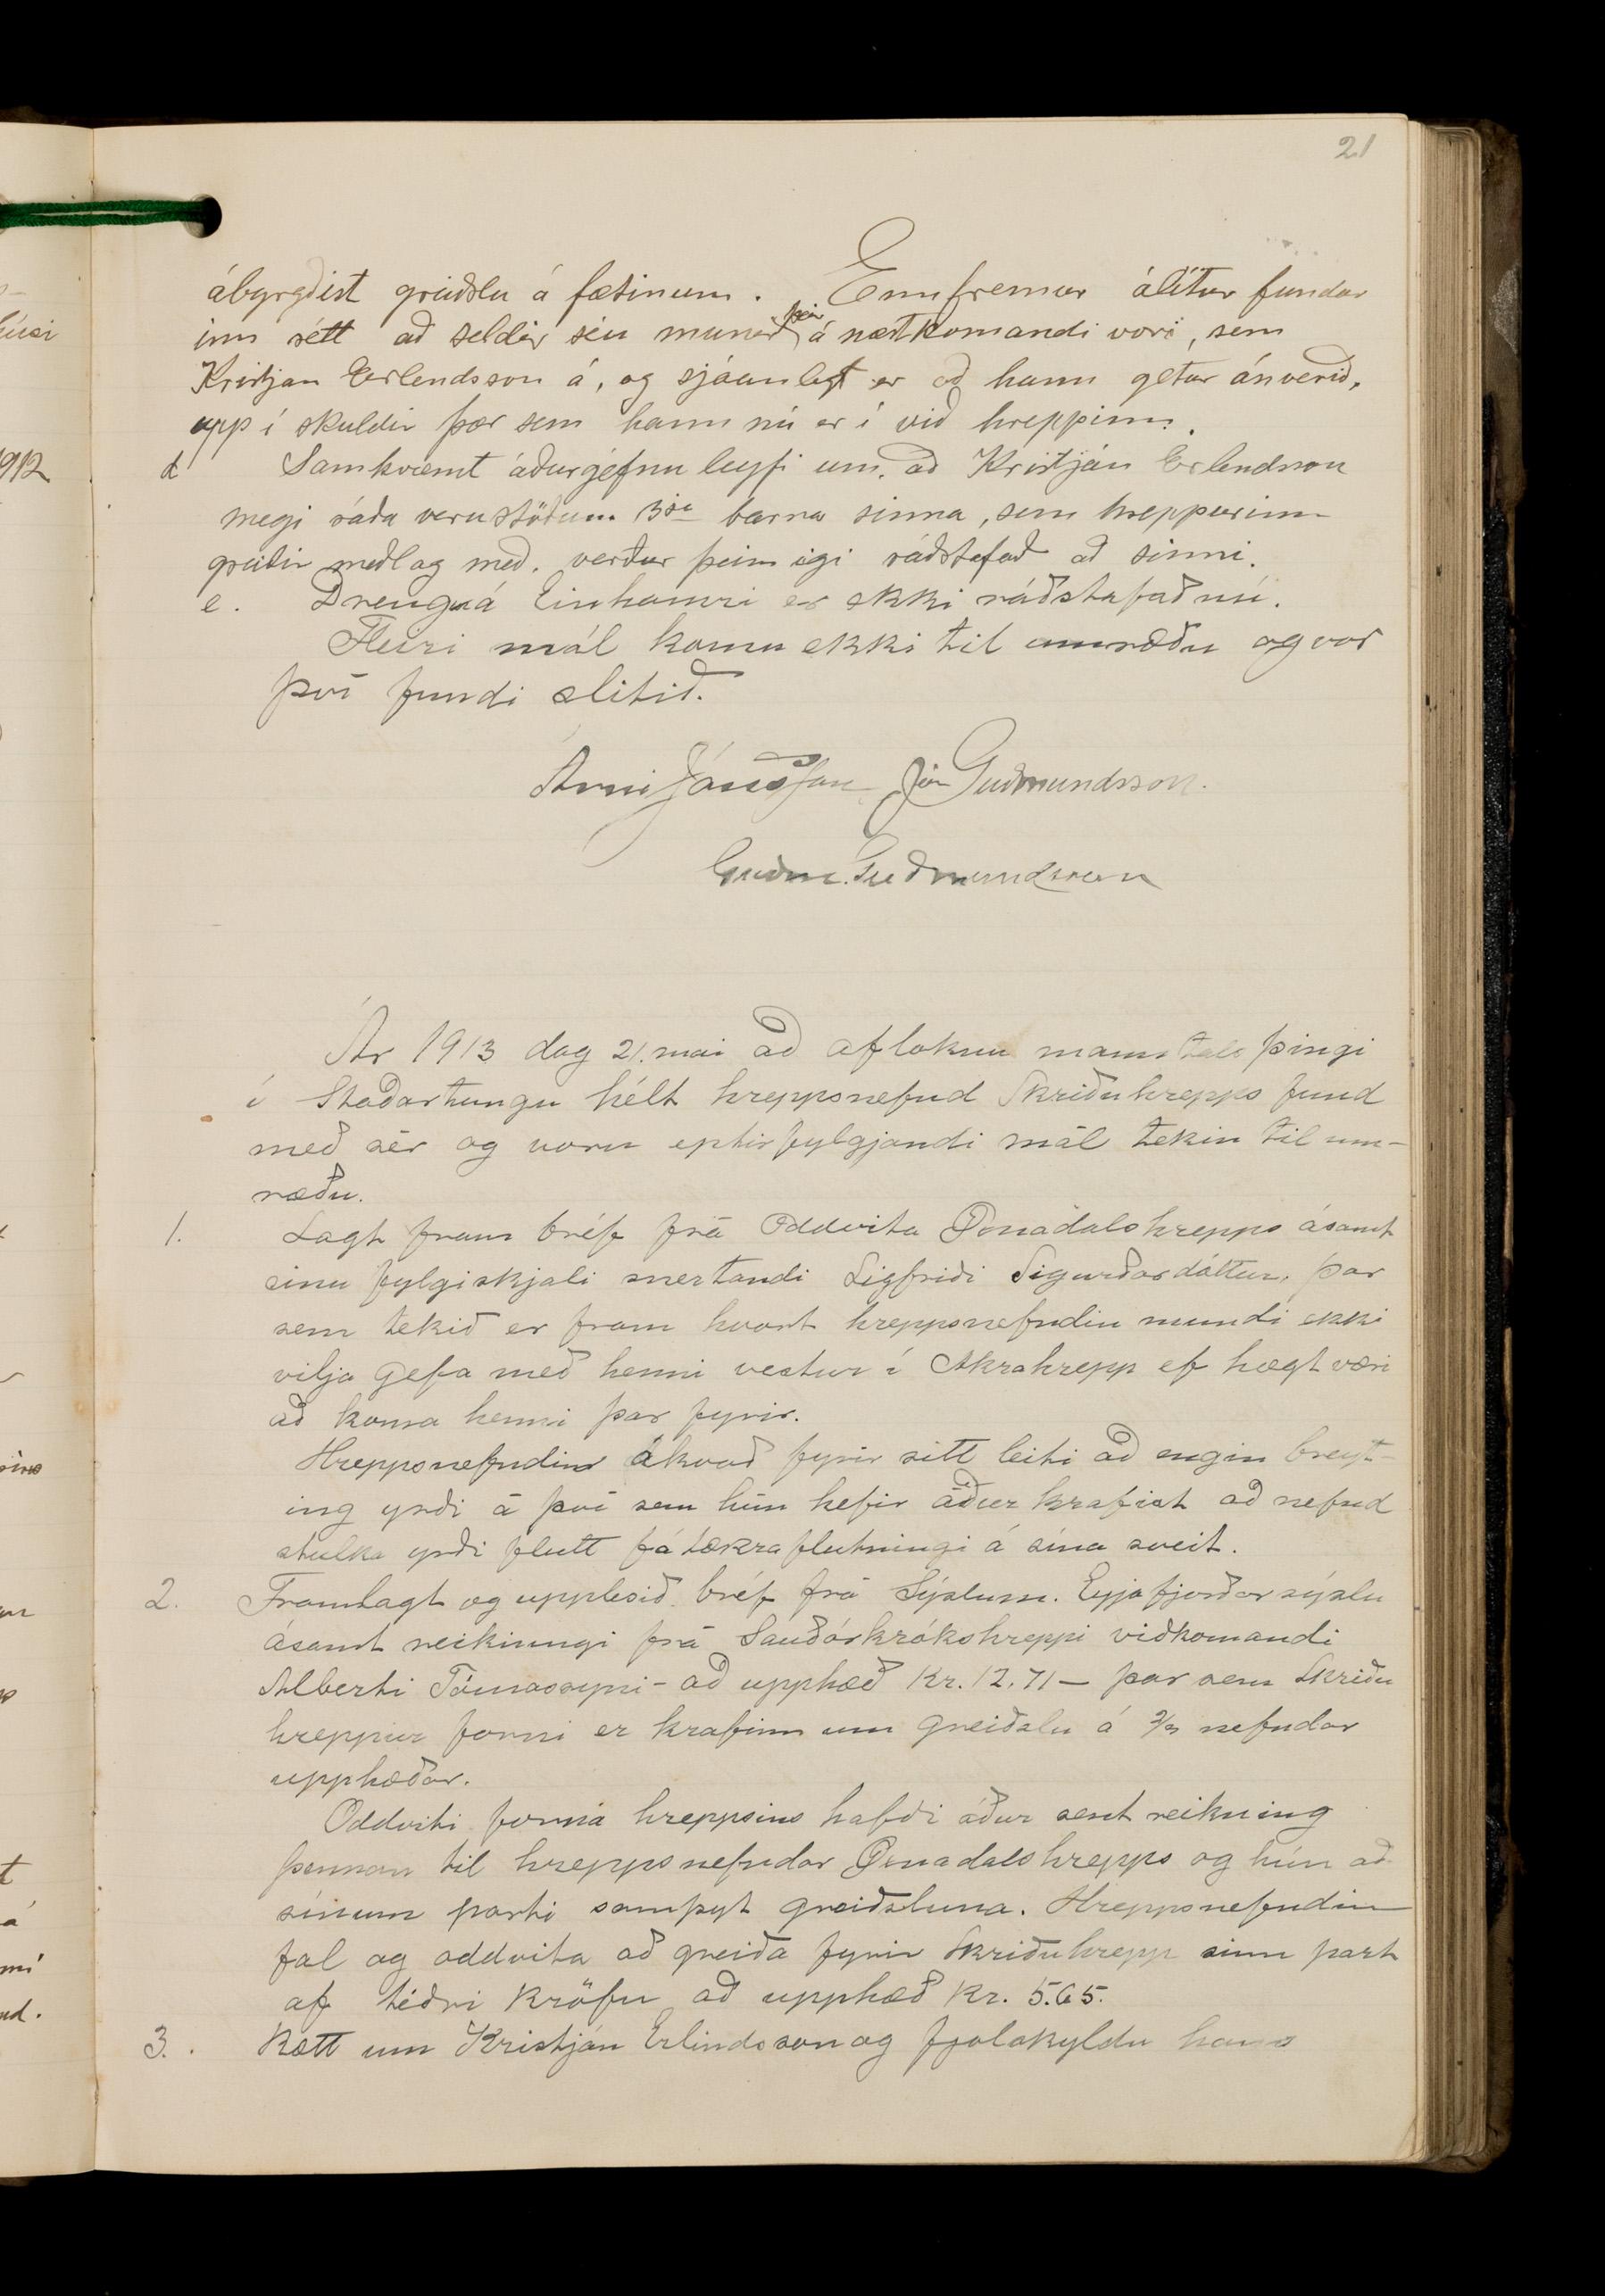 21
ábyrgðist greiðslu á fæðinum. Ennfremur álítur fundur
inn rétt að seldir séu munir þeir á næstkomandi vori, sem
Kristjan Erlendsson á, og sjáanlegt er að hann getur ánverið,
upp í skuldir þær sem hann nú er í við hreppinn.
d Samkvæmt áðurgefnu leyfi um, að Kristján Erlendsson
megi ráða verustöðum 3ja barna sinna, sem hreppurinn
greiðir meðlag með. verður þeim eigi ráðstafað að sinni.
e. Drengur á Einhamri er ekki ráðstafað nú.
Fleiri mál komu ekki til umræðu og var
því fundi slitið.
Árni Jónsson Jón Guðmundsson.
Guðm. Guðmundsson
Ár 1913 dag 21. mai að afloknu manntals þingi
í Staðartungu hélt hreppsnefnd Skriðuhrepps fund
með sér og voru eptirfylgjandi mál tekin til um-
ræðu.
1. Lagt fram bréf frá Oddvita Öxnadalshrepps ásamt
einu fylgiskjali snertandi Sigfríði Sigurðardóttur, þar
sem tekið er fram hvort hreppsnefndin mundi ekki
vilja gefa með henni vestur í Akrahrepp ef hægt væri
að koma henni þar fyrir.
Hreppsnefndin ákvað fyrir sitt leiti að engin breyt-
ing yrði á því sem hún hefir áður krafist að nefnd
stúlka yrði flutt fátækraflutningi á sína sveit.
2. Framlagt og upplesið bréf frá Sýslum. Eyjafjarðarsýslu
ásamt reikningi frá Sauðárkrókshreppi viðkomandi
Alberti Tómassyni - að upphæð Kr. 12.71 - þar sem Skriðu
hreppur forni er krafinn um greiðslu á 2/3 nefndar
upphæðar.
Oddviti forna hreppsins hafði áður sent reikning
þennan til hreppsnefndar Öxnadalshrepps og hún að
sínum parti samþyt greiðsluna. Hreppsnefndin
fal og oddvita að greiða fyrir Skriðuhrepp sinn part
af téðri kröfu að upphæð kr. 5.65.
3. Rætt um Kristján Erlindsson og fjölskyldu hans